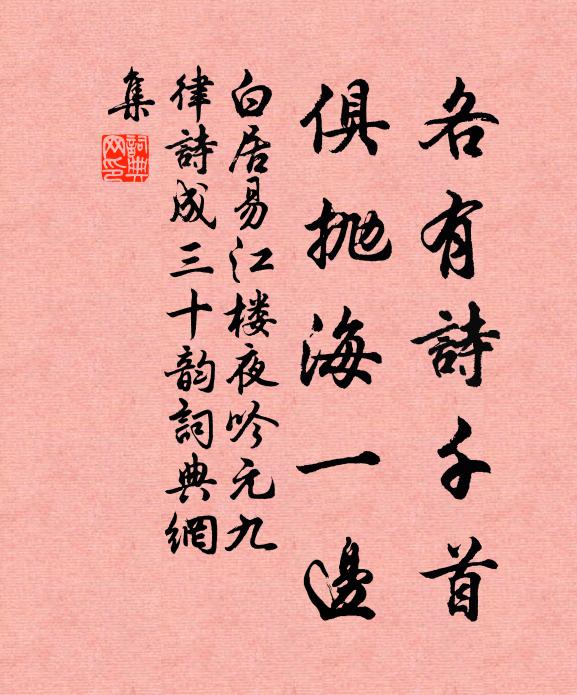 各有詩千首
俱拋海一邊
白居易江楼夜吟元九
律詩成三十韵詞典網
集
詞典網印